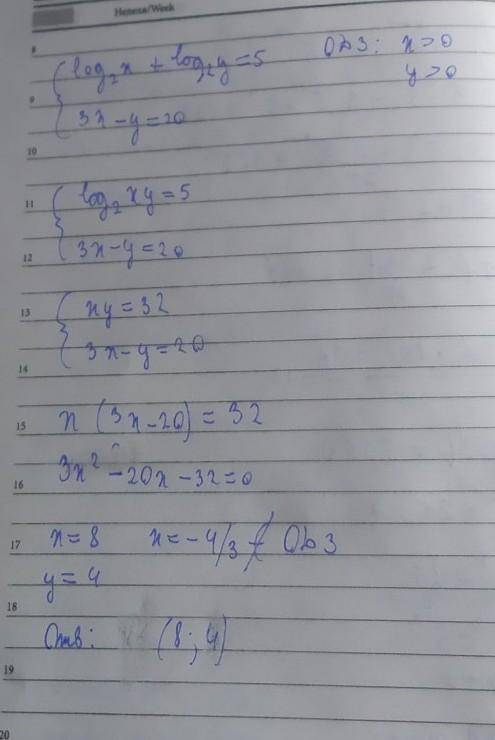 Неделя/Week
8
{ log₂x + log₂y = 5 ОДЗ: x>0
9 y>0
3x - y = 20
10
11 { log₂xy = 5
12 3x - y = 20
13 { xy = 32
3x - y = 20
14
15 x (3x - 20) = 32
3x² - 20x - 32 = 0
16
17 x = 8 x = - 4/3 ∉ ОДЗ
y = 4
18
Отв: (8; 4)
19
20